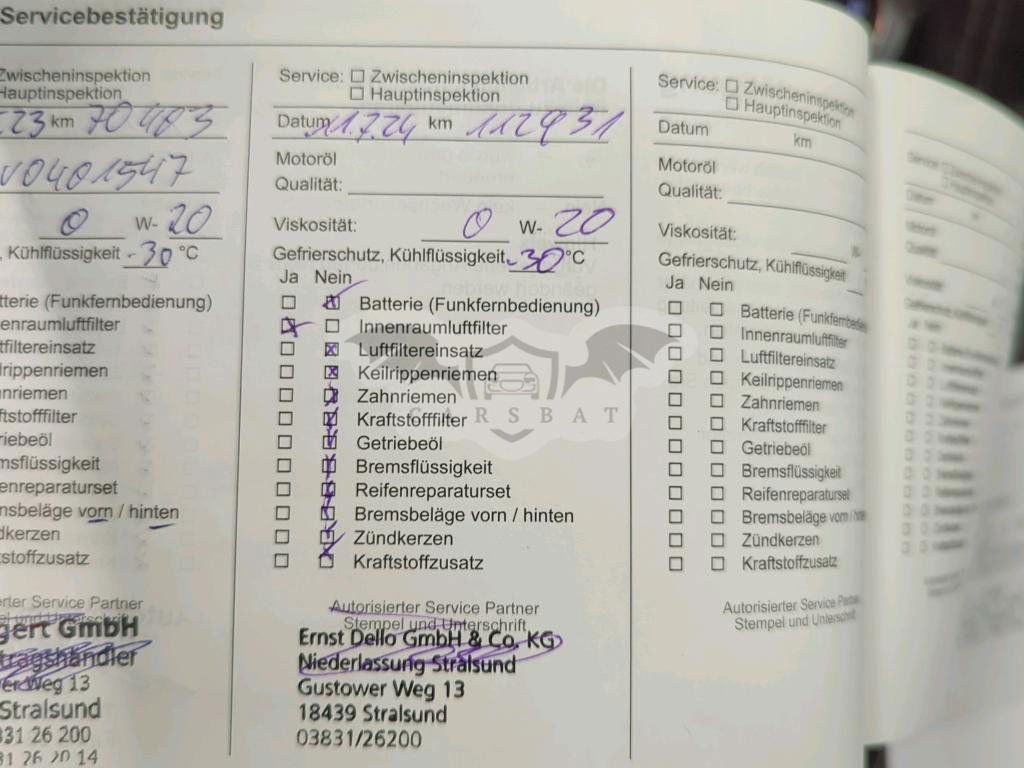 Servicebestätigung
Zwischeninspektion
Hauptinspektion
23 km 70403
V0401547
0 W- 20
, Kühlflüssigkeit -30 °C
tterie (Funkfernbedienung)
enraumluftfilter
tfiltereinsatz
lrippenriemen
nriemen
ftstofffilter
riebeöl
msflüssigkeit
enreparaturset
msbeläge vorn / hinten
dkerzen
stoffzusatz
erter Service Partner
gert GmbH
tragshändler
er Weg 13
Stralsund
831 26 200
31 26 20 14
Service: Zwischeninspektion
Hauptinspektion
Datum 11.7.24 km 112931
Motoröl
Qualität:
Viskosität: 0 W- 20
Gefrierschutz, Kühlflüssigkeit -30 °C
Ja Nein
Batterie (Funkfernbedienung)
Innenraumluftfilter
Luftfiltereinsatz
Keilrippenriemen
Zahnriemen
Kraftstofffilter
Getriebeöl
Bremsflüssigkeit
Reifenreparaturset
Bremsbeläge vorn / hinten
Zündkerzen
Kraftstoffzusatz
Autorisierter Service Partner
Stempel und Unterschrift
Ernst Dello GmbH & Co. KG
Niederlassung Stralsund
Gustower Weg 13
18439 Stralsund
03831/26200
Service: Zwischeninspektion
Hauptinspektion
Datum km
Motoröl
Qualität:
Viskosität:
Gefrierschutz, Kühlflüssigkeit
Ja Nein
Batterie (Funkfernbedie
Innenraumluftfilter
Luftfiltereinsatz
Keilrippenriemen
Zahnriemen
Kraftstofffilter
Getriebeöl
Bremsflüssigkeit
Reifenreparaturset
Bremsbeläge vorn /
Zündkerzen
Kraftstoffzusatz
Autorisierter Service Partne
Stempel und Unterschrift
CARSBAT